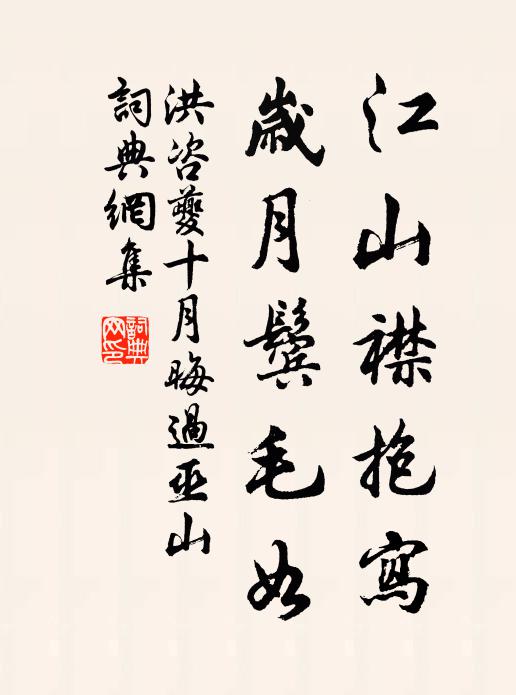 江山襟抱寫
歲月鬢毛如
洪咨夔十月晦過巫山
詞典網集
詞典網印